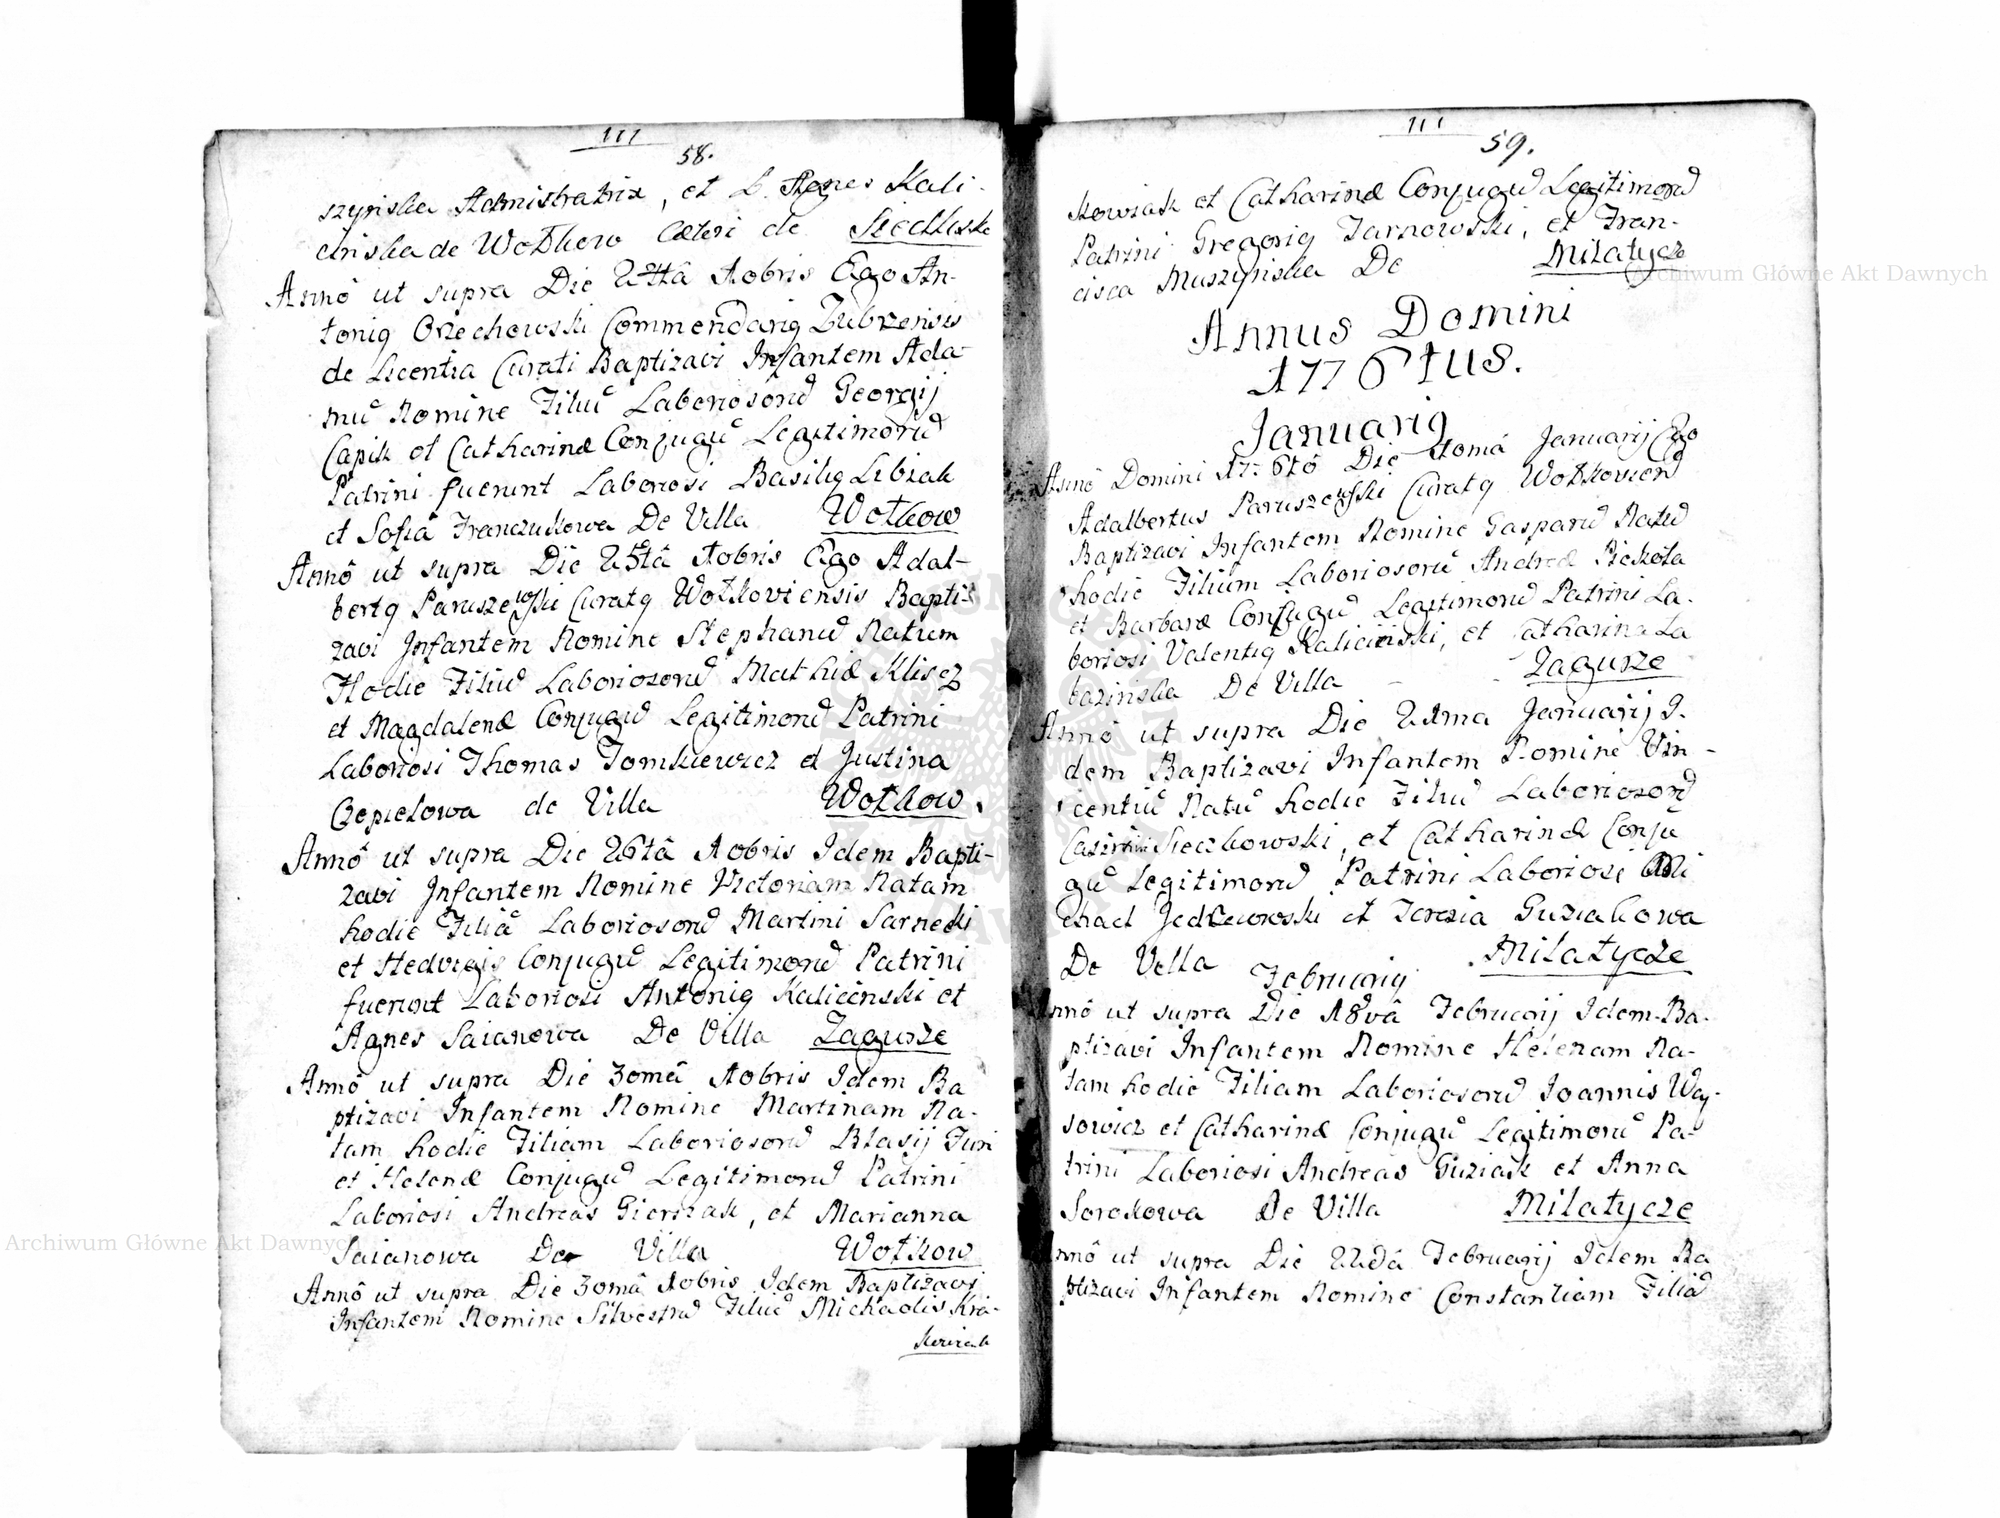 111
58.
szyńska Admistratrix, et L. Agnes Kali-
cińska de Wołkow Cæteri de Siedliske
Annô ut supra Die 24tâ Xobris Ego An-
toniq Orzechowski Commendariq Zubrzensis
de Licentia Curati Baptizavi Infantem Ada-
mũ Nomine Filiũ Laboriosorũ Georgij
Capik et Catharinæ Conjugũ Legitimorũ
Patrini fuerunt Laboriosi Basiliq Libiak
et Sofiâ Franczukowa De Villa Wołkow
Annô ut supra Die 25tâ Xobris Ego Adal-
bertq Paruszewski Curatq Wołkoviensis Bapti-
zavi Infantem Nomine Stephanũ Natum
Hodie Filiũ Laboriosorũ Mathiæ Klisez
et Magdalenæ Conjugũ Legitimorũ Patrini
Laboriosi Thomas Tomkiewicz et Justina
Czepielowa de Villa Wołkow.
Annô ut supra Die 26tâ Xobris Idem Bapti-
zavi Infantem Nomine Victoriam Natam
hodie Filiã Laboriosorũ Martini Sarnecki
et Hedvigis Conjugũ Legitimorũ Patrini
fuerunt Laboriosi Antoniq Kaliciński et
Agnes Saianowa De Villa Zagurze
Annô ut supra Die 30mâ Xobris Idem Ba
ptizavi Infantem Nomine Martinam Na-
tam hodie Filiam Laboriosorũ Blasij Juri
et Helenæ Conjugũ Legitimorũ Patrini
Laboriosi Andreas Gierszak, et Marianna
Saianowa De Villa Wołkow
Annô ut supra Die 30mâ Xobris Idem Baptizavi
Infantem Nomine Silvestrũ Filiũ Michaelis Kra-
kowiak
111
59.
kowiak et Catharinæ Conjugũ Legitimorũ
Patrini Gregoriq Tarnowski, et Fran-
cisca Muszyńska De Milatycz
Annus Domini
1776tus.
Januariq
Annô Domini 1776tô Die Januarij Ego
Adalbertus Paruszewski Curatq Wołkovien
Baptizavi Infantem Nomine Gasparũ Natũ
hodie Filium Laboriosorũ Andreæ Piekota
et Barbaræ Conjugũ Legitimorũ Patrini La-
boriosi Valentiq Kaliciński, et Catharina La
bazinska De Villa - - Zagurze
Annô ut supra Die 21ma Januarij I-
dem Baptizavi Infantem Nomine Vin-
centiũ Natũ hodie Filiũ Laboriosorũ
Casimiri Sieczkowski, et Catharinæ Conju
gũ Legitimorũ Patrini Laboriosi Mi
chael Jedlewski et Teresia Guziakowa
De Villa Milatycze
Februariq
Annô ut supra Die 18vâ Februarij Idem Ba-
ptizavi Infantem Nomine Helenam Na-
tam hodie Filiam Laboriosorũ Joannis Wąs-
sowicz et Catharinæ Conjugũ Legitimorũ Pa-
trini Laboriosi Andreas Guziak et Anna
Sorokowa De Villa Milatycze
Annô ut supra Die 22dâ Februarij Idem Ba
ptizavi Infantem Nomine Constantiam Filiã
Archiwum Główne Akt Dawnych
Archiwum Główne Akt Dawnych